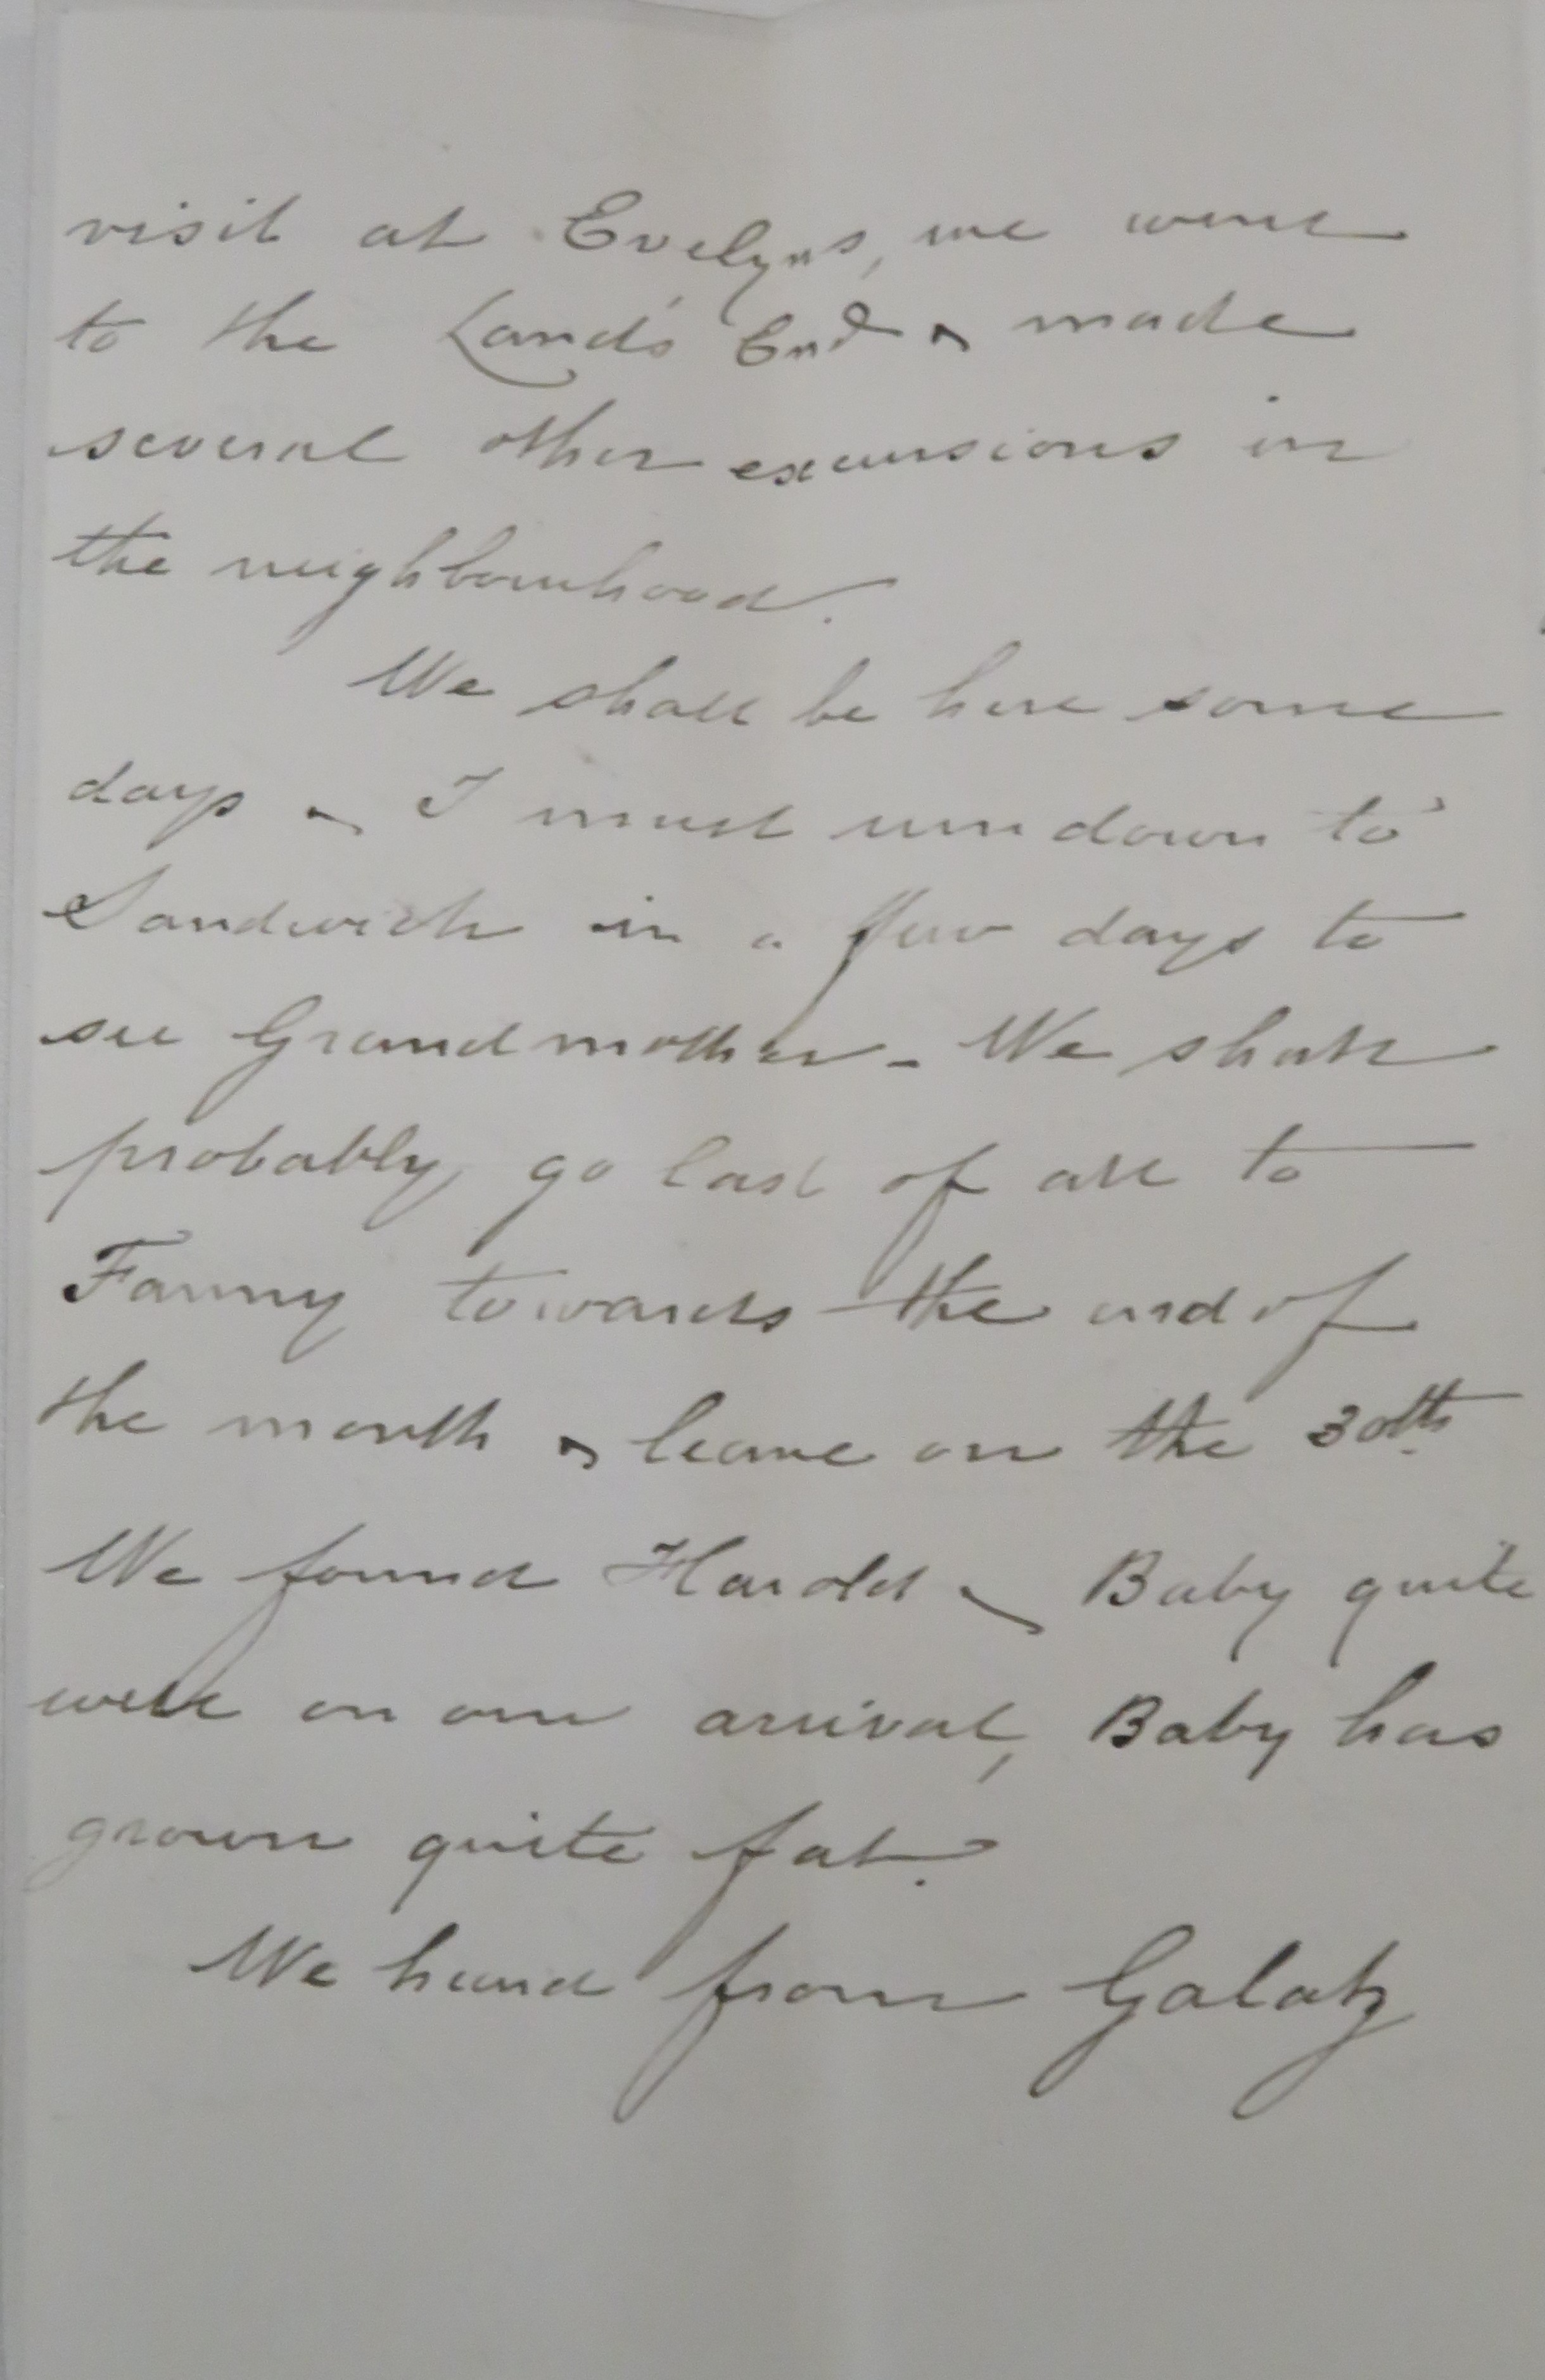 visit at Evelyns, we went
to the Land's End & made
several other excursions in
the neighbourhood.
We shall be here some
days & I must run down to
Sandwich in a few days to
see Grandmother - We shall
probably go last of all to
Fanny towards the end of
the month & leave on the 30th
We found Harold & Baby quite
well on our arrival, Baby has
grown quite fat.
We heard from Galatz